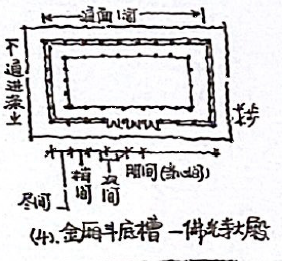 通面阔
通进深
梢间
次间
明间(当心间)
尽间
(4).金厢斗底槽—佛光寺大殿